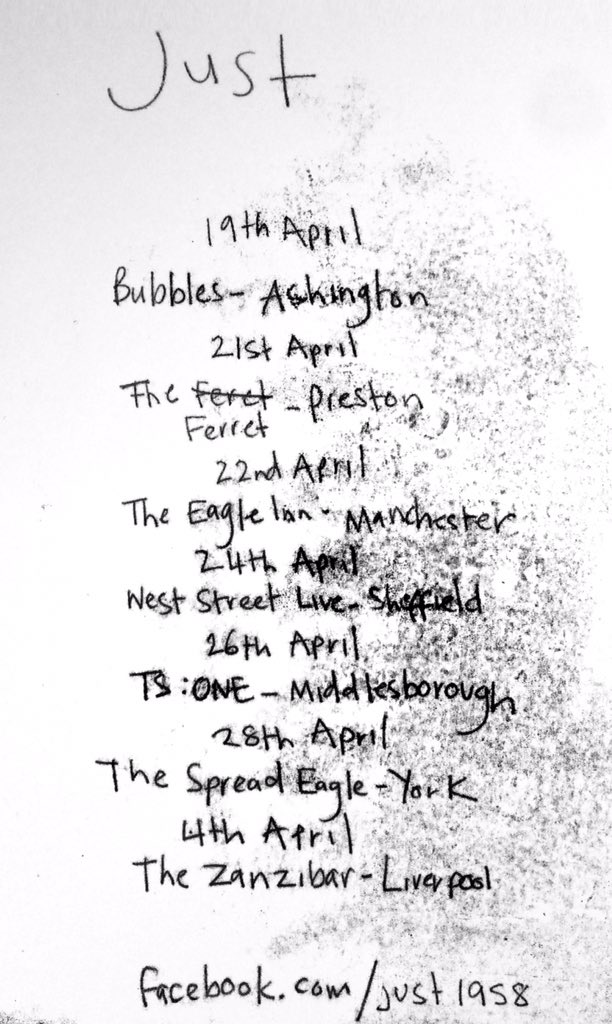 Just
19th April
Bubbles - Ashington
21st April
The Feret - Preston
Ferret
22nd April
The Eagle Inn - Manchester
24th April
West Street Live - Sheffield
26th April
TS:ONE - Middlesborough
28th April
The Spread Eagle - York
4th April
The Zanzibar - Liverpool
facebook.com/just1958